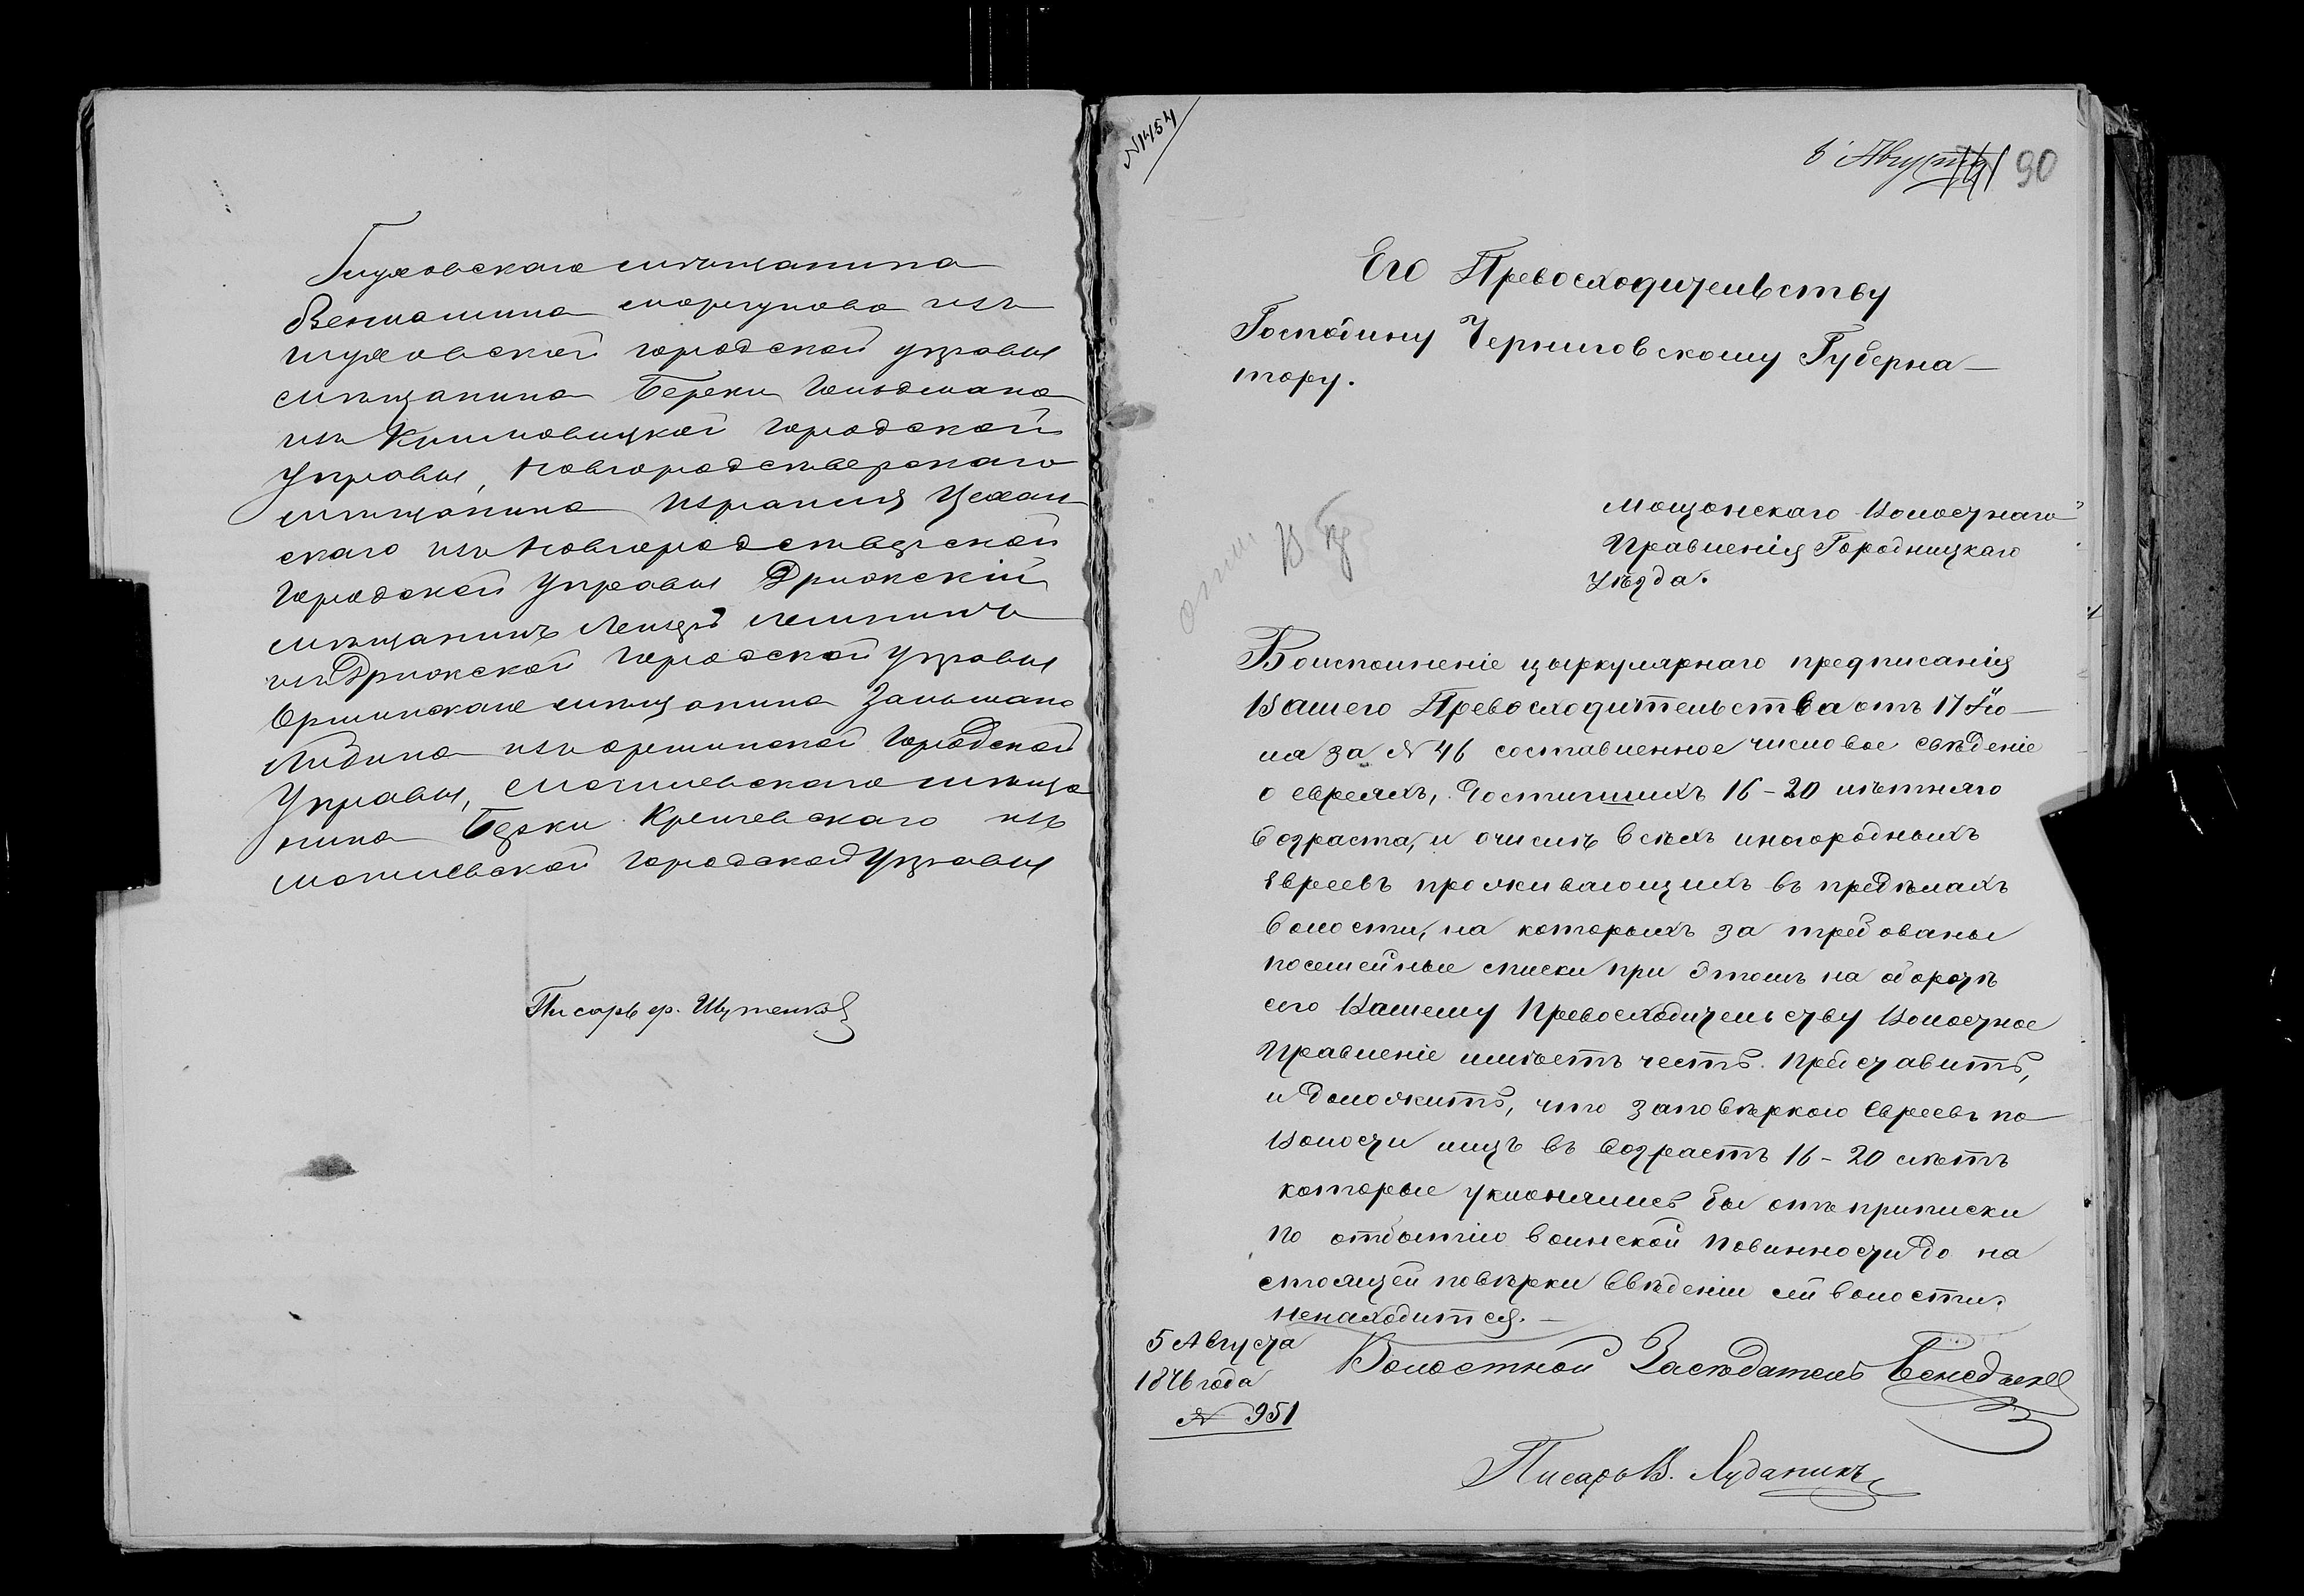 Глуховскаго мѣщанина
Веніамина моргунова изъ
глуховской городской управы
мѣщанина Берки Гольдмана
изъ Климовицкой городской
Управы, Новгородсѣверскаго
мѣщанина Израиля Цехан
скаго изъ Новгородсѣверской
городской Управы Дриокскій
мѣщанинъ Лейзеръ
изъ Дриокской городской управы
Оршинскаго мѣщанина Залмана
Лидина изъ оршинской городской
Управы, Могилевскаго мѣща
нина Берки Кричевскаго изъ
могилевской городской Управы
Писарь ер. Шутенко
№ 1454
6 Августа 90
Его Превосходительству
Господину Черниговскому Губерна-
тору.
Мощонскаго Волостнаго
Правленія Городницкаго
Уѣзда.
Воисполненіе цыркулярнаго предписанія
Вашего Превосходительства отъ 17 Ію-
ля за № 46 составленное числовое свѣденіе
о евреяхъ, достигшихъ 16-20 лѣтняго
возраста, и очислѣ всѣхъ иногородныхъ
Евреевъ проживающихъ въ предѣлахъ
волости, на которыхъ за требованы
посемейные списки при этомъ на оборотѣ
сего Вашему Превосходительству Волостное
Правленіе имѣетъ честь представить,
и доложить, что заповѣркою Евреевъ по
Волости лицъ въ возрастѣ 16-20 лѣтъ
которые уклонялись бы отъ приписки
по отбытію воинской повинности до на
стоящей повѣрки Ввѣденіи сей волости
ненаходится.-
5 Августа
1876 года
№ 951
Волостной Засѣдатель
Писарь В. Луданикъ